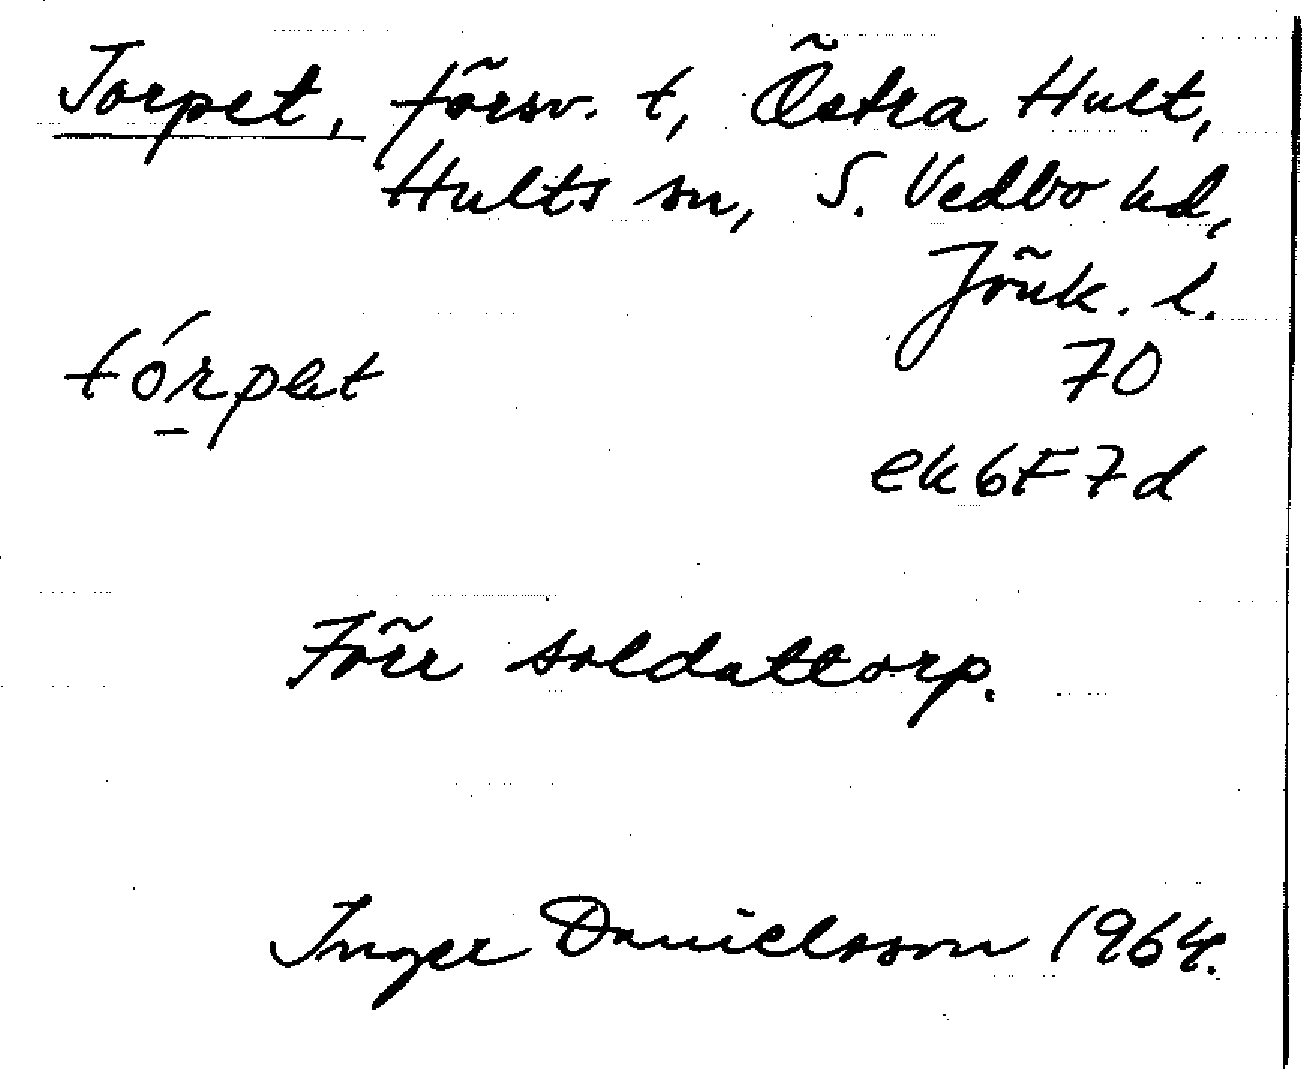 Torpet, försv. t, Östra Hult,
Hults sn, S. Vedbo hd,
Jönk. l.
tórpet
70
ek6F7d
Förr soldattorp.
Inger Danielsson 1964.